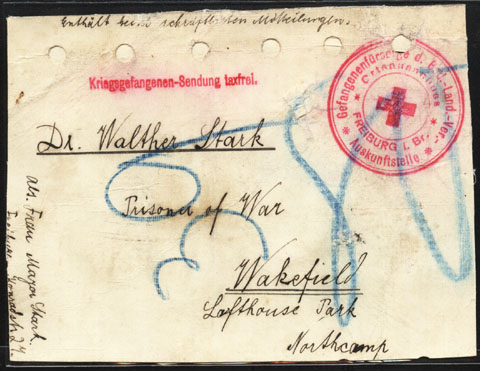 Enthält keine schriftlichen Mitteilungen.
Kriegsgefangenen-Sendung taxfrei.
Gefangenenfürsorge d. Land-Ver.
Ortsausschuss
FREIBURG i. Br.
Auskunftstelle
Dr. Walther Stark
Prisoner of War
Wakefield
Lofthouse Park
Northcamp
abs. Frau Major Stark
Freiburg